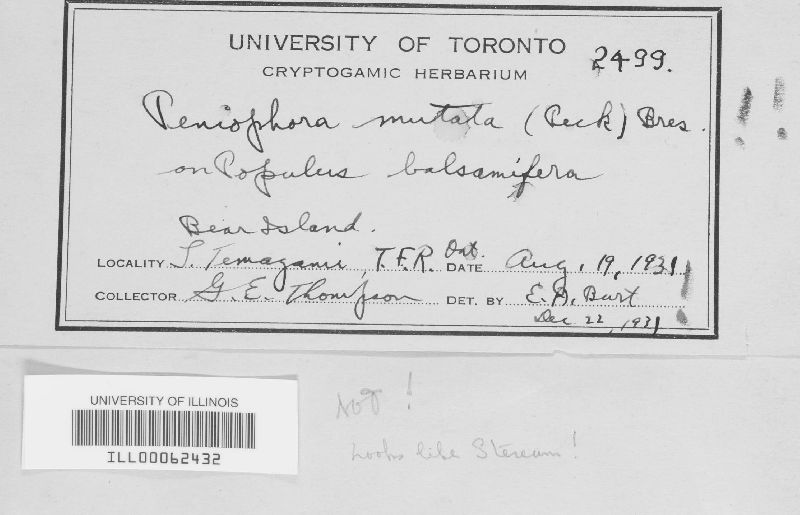 UNIVERSITY OF TORONTO 2499.
CRYPTOGAMIC HERBARIUM
Peniophora mutata (Peck) Bres.
on Populus balsamifera
Bear Island.
LOCALITY L. Temagami, T.F.R. Ont. DATE Aug. 19, 1931
COLLECTOR G. E. Thompson DET. BY E. A. Burt
Dec 22, 1931
UNIVERSITY OF ILLINOIS
ILL00062432
NOT!
Looks like Stereum!